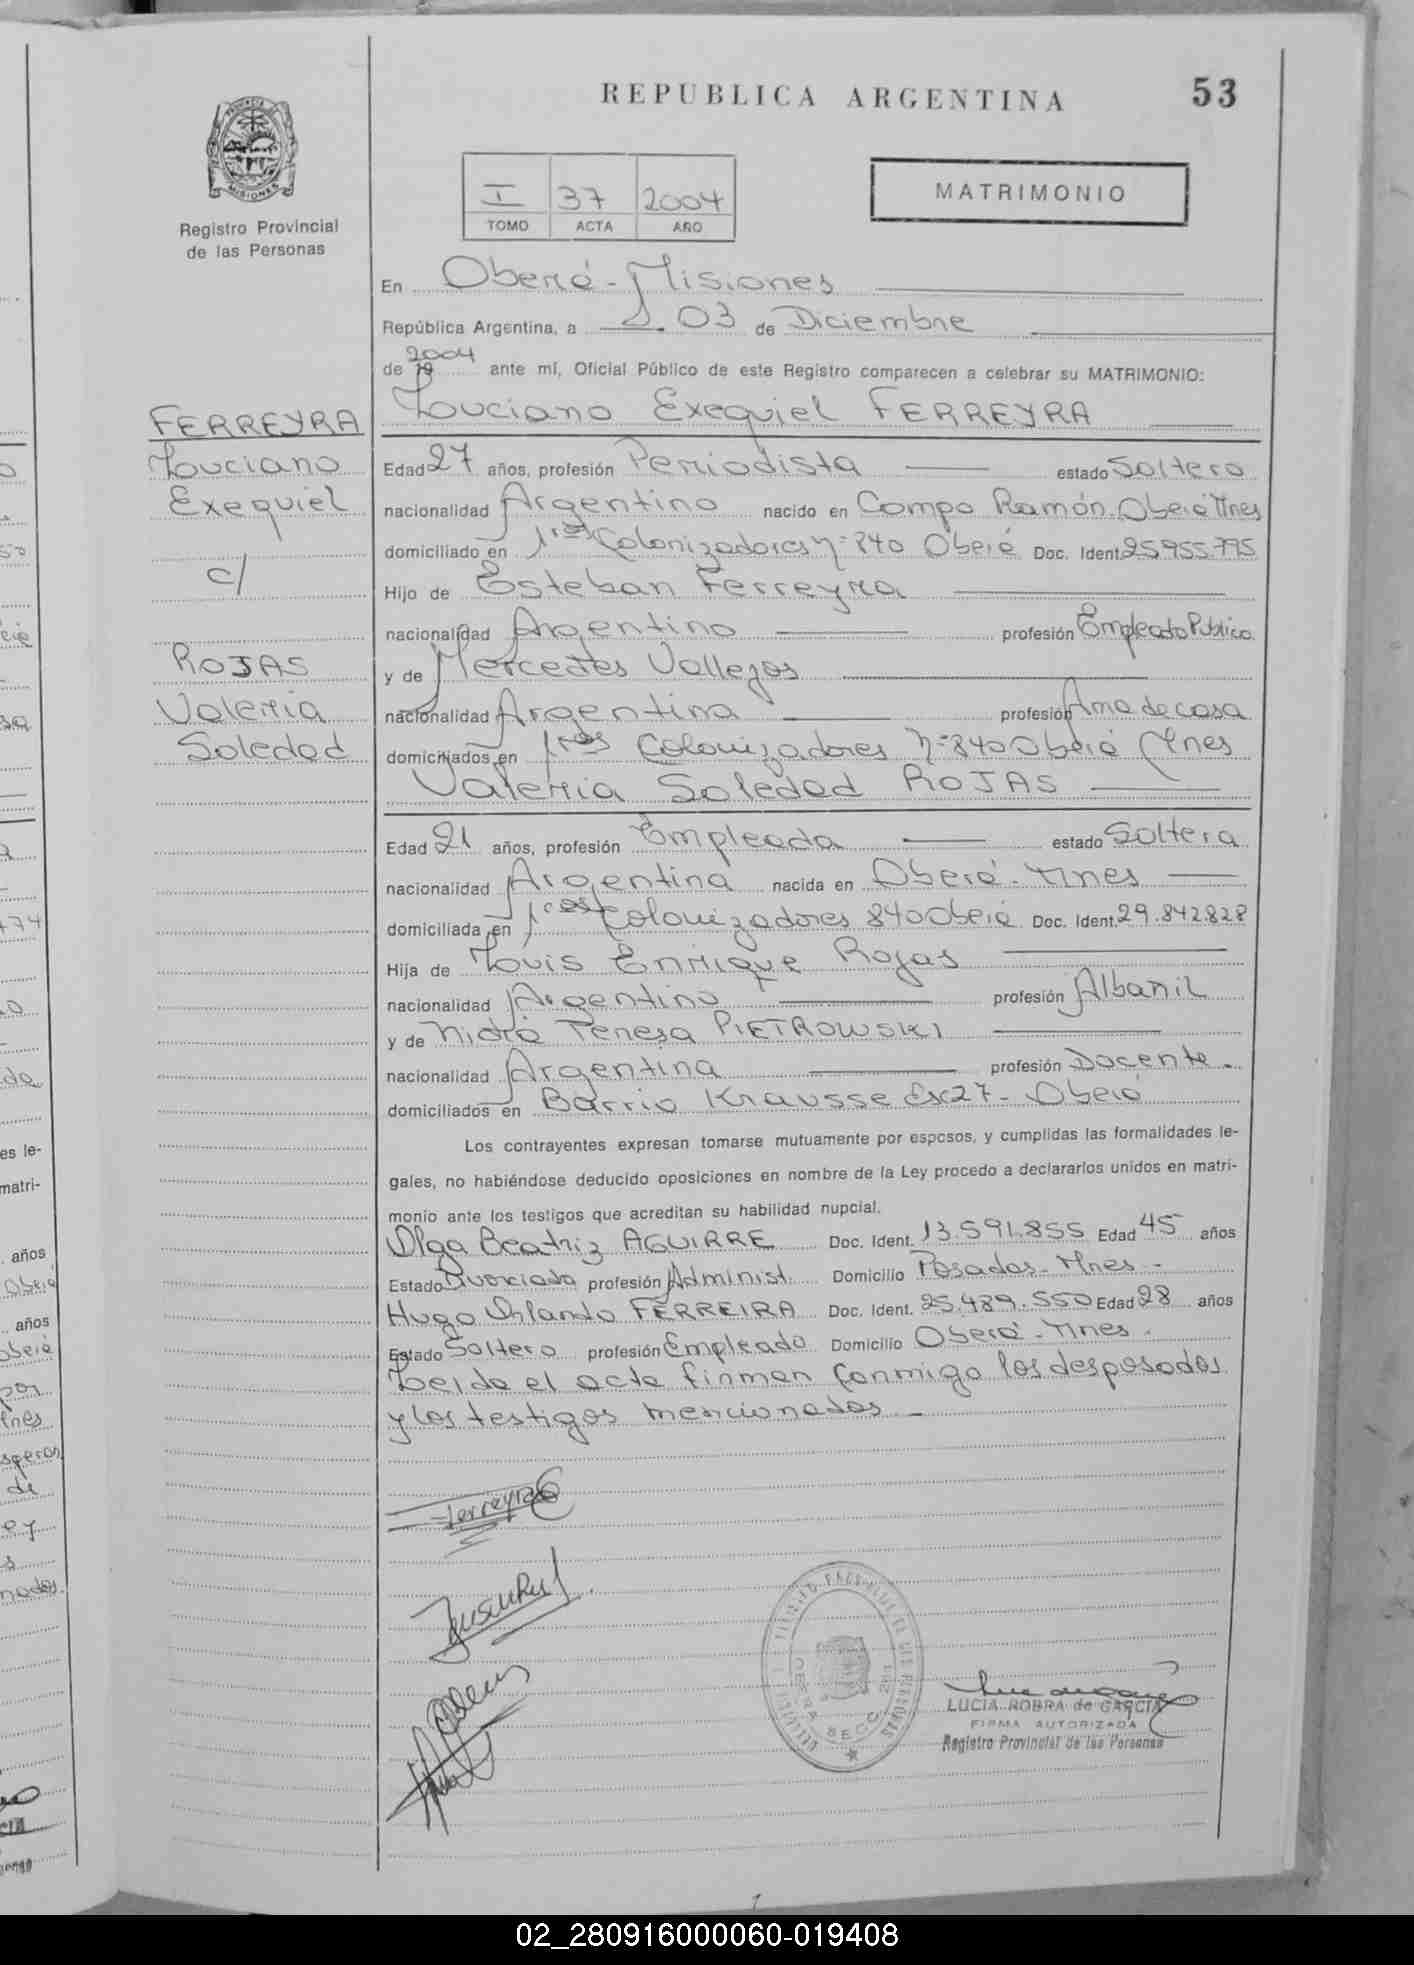 REPUBLICA ARGENTINA 53
I 37 2004
TOMO ACTA AÑO
MATRIMONIO
Registro Provincial
de las Personas
En Oberá - Misiones
República Argentina, a 03 de Diciembre
de 19 2004 ante mí, Oficial Público de este Registro comparecen a celebrar su MATRIMONIO:
Luciano Exequiel FERREYRA
FERREYRA
Luciano
Exequiel
c/
ROJAS
Valeria
Soledad
Edad 27 años, profesión Periodista estado Soltero
nacionalidad Argentino nacido en Campo Ramón Oberá Mnes
domiciliado en 1ros Colonizadores Nº 840 Oberá Doc. Ident. 25.955.775
Hijo de Esteban Ferreyra
nacionalidad Argentino profesión Empleado Publico
y de Mercedes Vallejos
nacionalidad Argentina profesión Ama de casa
domiciliados en 1ros Colonizadores Nº 840 Oberá Mnes
Valeria Soledad ROJAS
Edad 21 años, profesión Empleada estado Soltera
nacionalidad Argentina nacida en Oberá - Mnes
domiciliada en 1ros Colonizadores 840 Oberá Doc. Ident. 29.842.828
Hija de Luis Enrique Rojas
nacionalidad Argentino profesión Albanil
y de Teresa PIETROWSKI
nacionalidad Argentina profesión Docente
domiciliados en Barrio Krausse 27 - Oberá
Los contrayentes expresan tomarse mutuamente por esposos, y cumplidas las formalidades le-
gales, no habiéndose deducido oposiciones en nombre de la Ley procedo a declararlos unidos en matri-
monio ante los testigos que acreditan su habilidad nupcial.
Olga Beatriz AGUIRRE Doc. Ident. 13.591.855 Edad 45 años
Estado Divorciada profesión Administ. Domicilio Posadas - Mnes -
Hugo Orlando FERREIRA Doc. Ident. 25.489.550 Edad 28 años
Estado Soltero profesión Empleado Domicilio Oberá - Mnes.
Leida el acta firman conmigo los desposados
y los testigos mencionados -
Ferreyra
OBERA SECC.
LUCIA ROBRA de GARCIA
FIRMA AUTORIZADA
Registro Provincial de las Personas
02_280916000060-019408